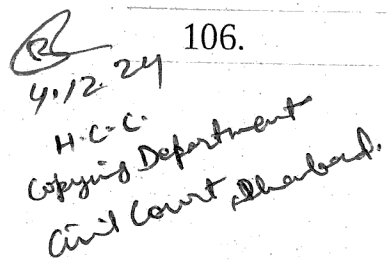 106.
4.12.24
H.C.C.
Copying Department
Civil Court, Dhanbad.